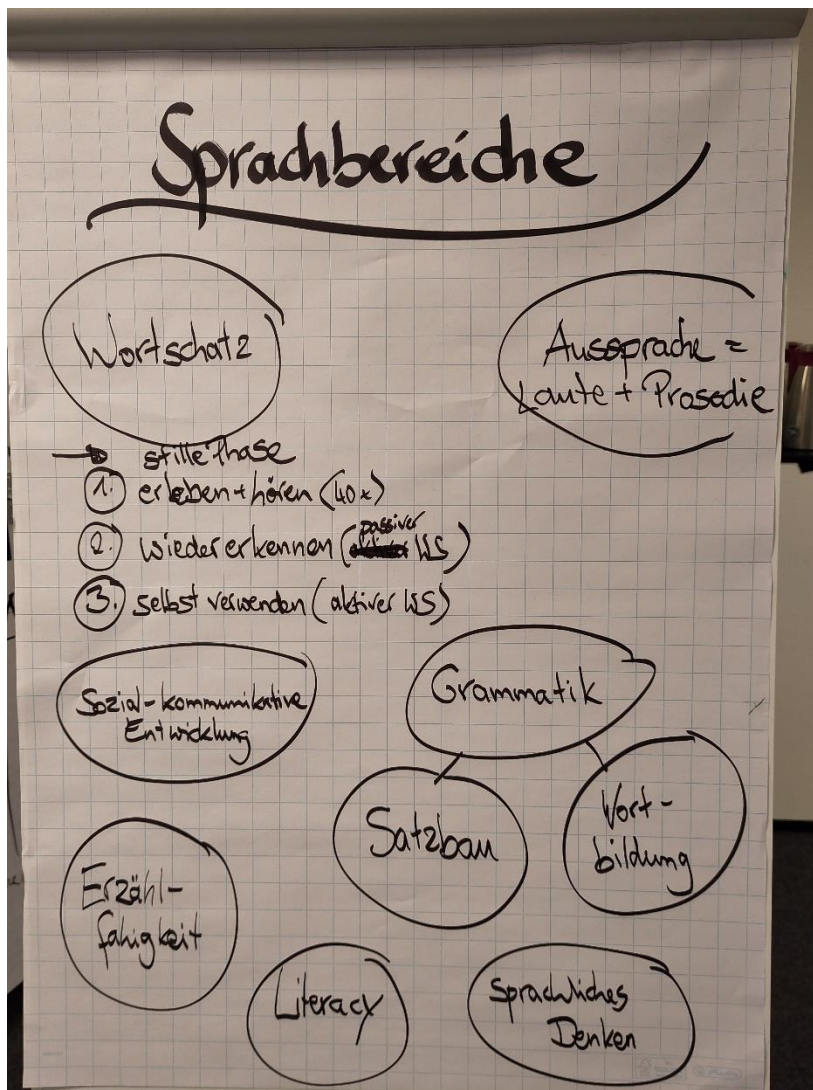 Sprachbereiche
Wortschatz
Aussprache =
Laute + Prosodie
→ stille Phase
1. erleben + hören (40x)
passiver
2. wiedererkennen ( WS)
3. selbst verwenden (aktiver WS)
Sozial-kommunikative
Entwicklung
Grammatik
Satzbau
Wort-
bildung
Erzähl-
fähigkeit
Literacy
Sprachliches
Denken